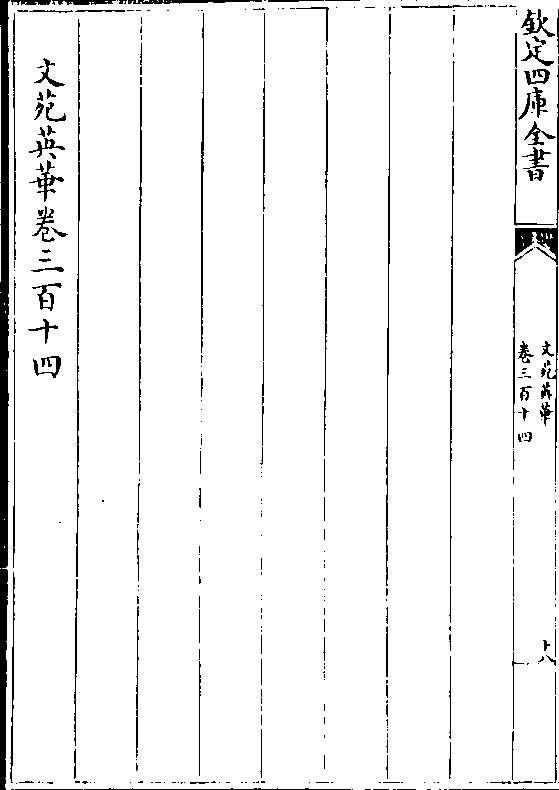 欽定四庫全書
文苑英華
卷三百十四
十八
文苑英華卷三百十四